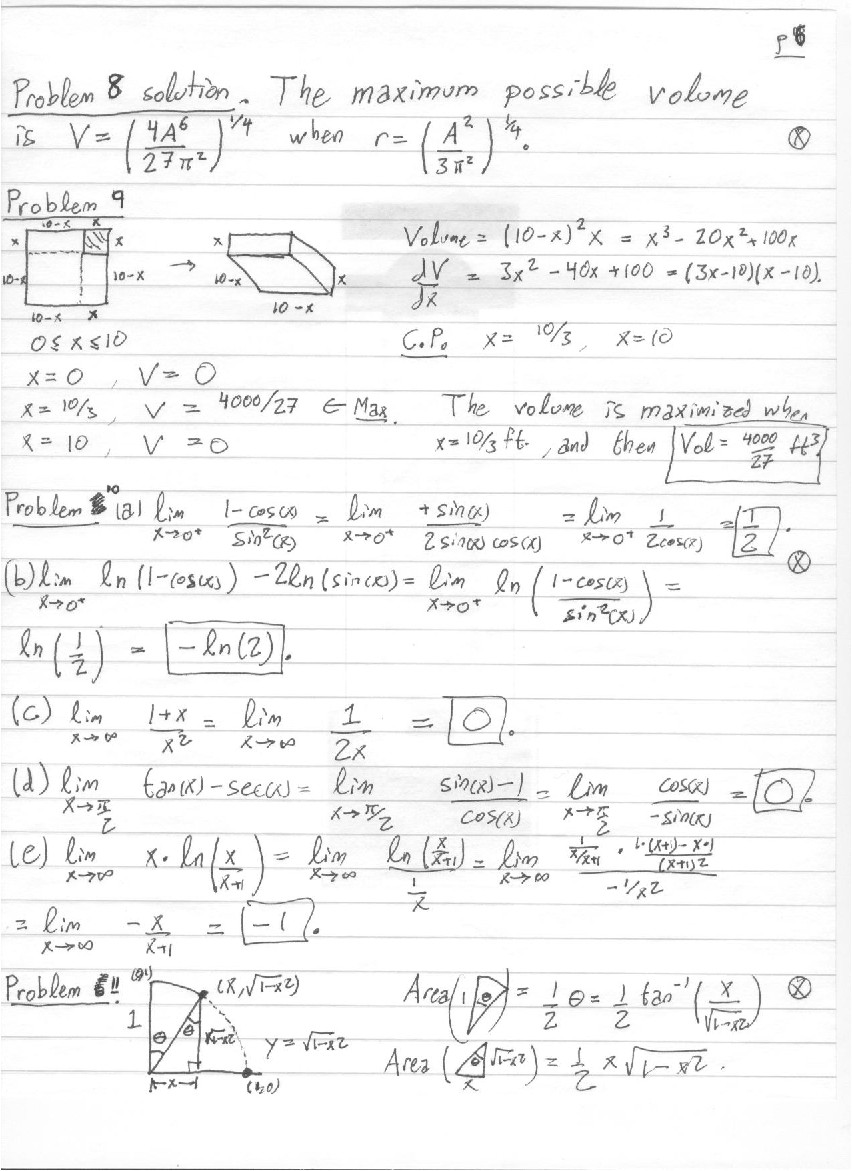 p 6
Problem 8 solution. The maximum possible volume
is V = (4A⁶/27π²)^1/4 when r = (A²/3π²)^1/4. ⓧ
Problem 9
10-x x
x x → x Volume = (10-x)²x = x³ - 20x² + 100x
10-x 10-x 10-x x dV/dx = 3x² - 40x + 100 = (3x-10)(x-10).
10-x x 10-x
0 ≤ x ≤ 10 C.P. x = 10/3, x = 10
x = 0, V = 0
x = 10/3, V = 4000/27 ← Max. The volume is maximized when
x = 10, V = 0 x = 10/3 ft., and then Vol = 4000/27 ft³.
Problem 10 (a) lim x→0⁺ (1-cos(x))/sin²(x) = lim x→0⁺ +sin(x)/(2 sin(x) cos(x)) = lim x→0⁺ 1/(2cos(x)) = 1/2. ⓧ
(b) lim x→0⁺ ln(1-cos(x)) - 2ln(sin(x)) = lim x→0⁺ ln((1-cos(x))/sin²(x)) =
ln(1/2) = -ln(2).
(c) lim x→∞ (1+x)/x² = lim x→∞ 1/2x = 0.
(d) lim x→π/2 tan(x) - sec(x) = lim x→π/2 (sin(x)-1)/cos(x) = lim x→π/2 cos(x)/-sin(x) = 0.
(e) lim x→∞ x·ln(x/(x+1)) = lim x→∞ ln(x/(x+1))/(1/x) = lim x→∞ (1/(x/(x+1)) · (1·(x+1) - x·1)/(x+1)²)/(-1/x²)
= lim x→∞ -x/(x+1) = -1.
Problem 11 (0,1) (x, √1-x²) Area(1 θ) = 1/2 θ = 1/2 tan⁻¹(x/√1-x²) ⓧ
1 θ θ √1-x² y = √1-x²
Area(θ √1-x² x) = 1/2 x √1-x².
x (1,0)